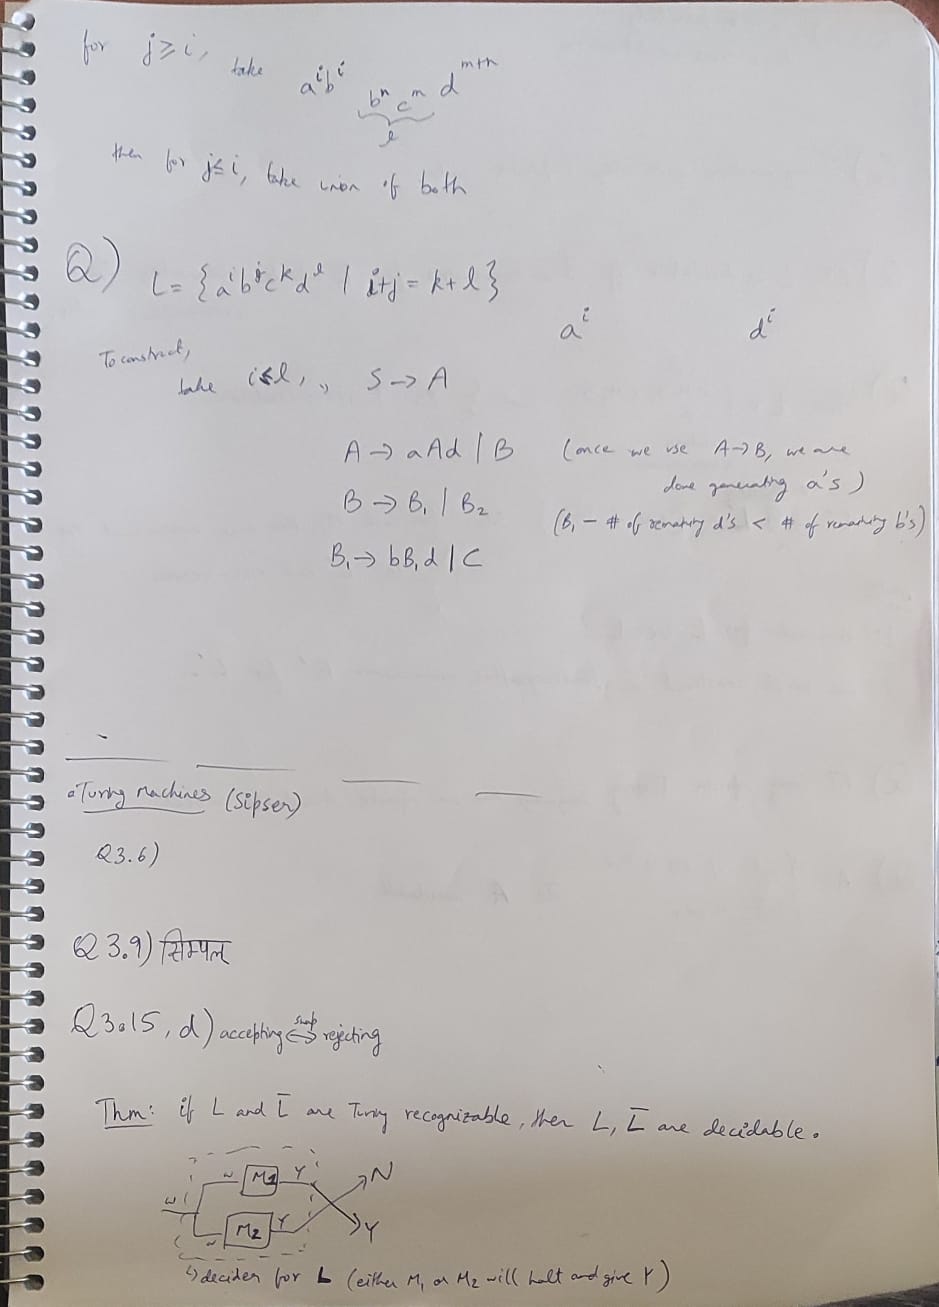 for j ≥ i, take aⁱbⁱ bⁿ cᵐ dᵐ⁺ⁿ
l
then for j ≤ i, take union of both
Q) L = {aⁱbʲcᵏdˡ | i+j = k+l}
aⁱ dⁱ
To construct,
take i≤l, ,, S → A
A → aAd | B (once we use A→B, we are
done generating a's)
B → B₁ | B₂ (B₁ – # of remaining d's < # of remaining b's)
B₁ → bB₁d | C
Turing Machines (Sipser)
Q3.6)
Q 3.9) सिम्पल
Q3.15, d) accepting swap ⇔ rejecting
Thm: if L and L̅ are Turing recognizable, then L, L̅ are decidable.
w w M1 Y N
w M2 Y Y
↳ decider for L (either M₁ or M₂ will halt and give Y)